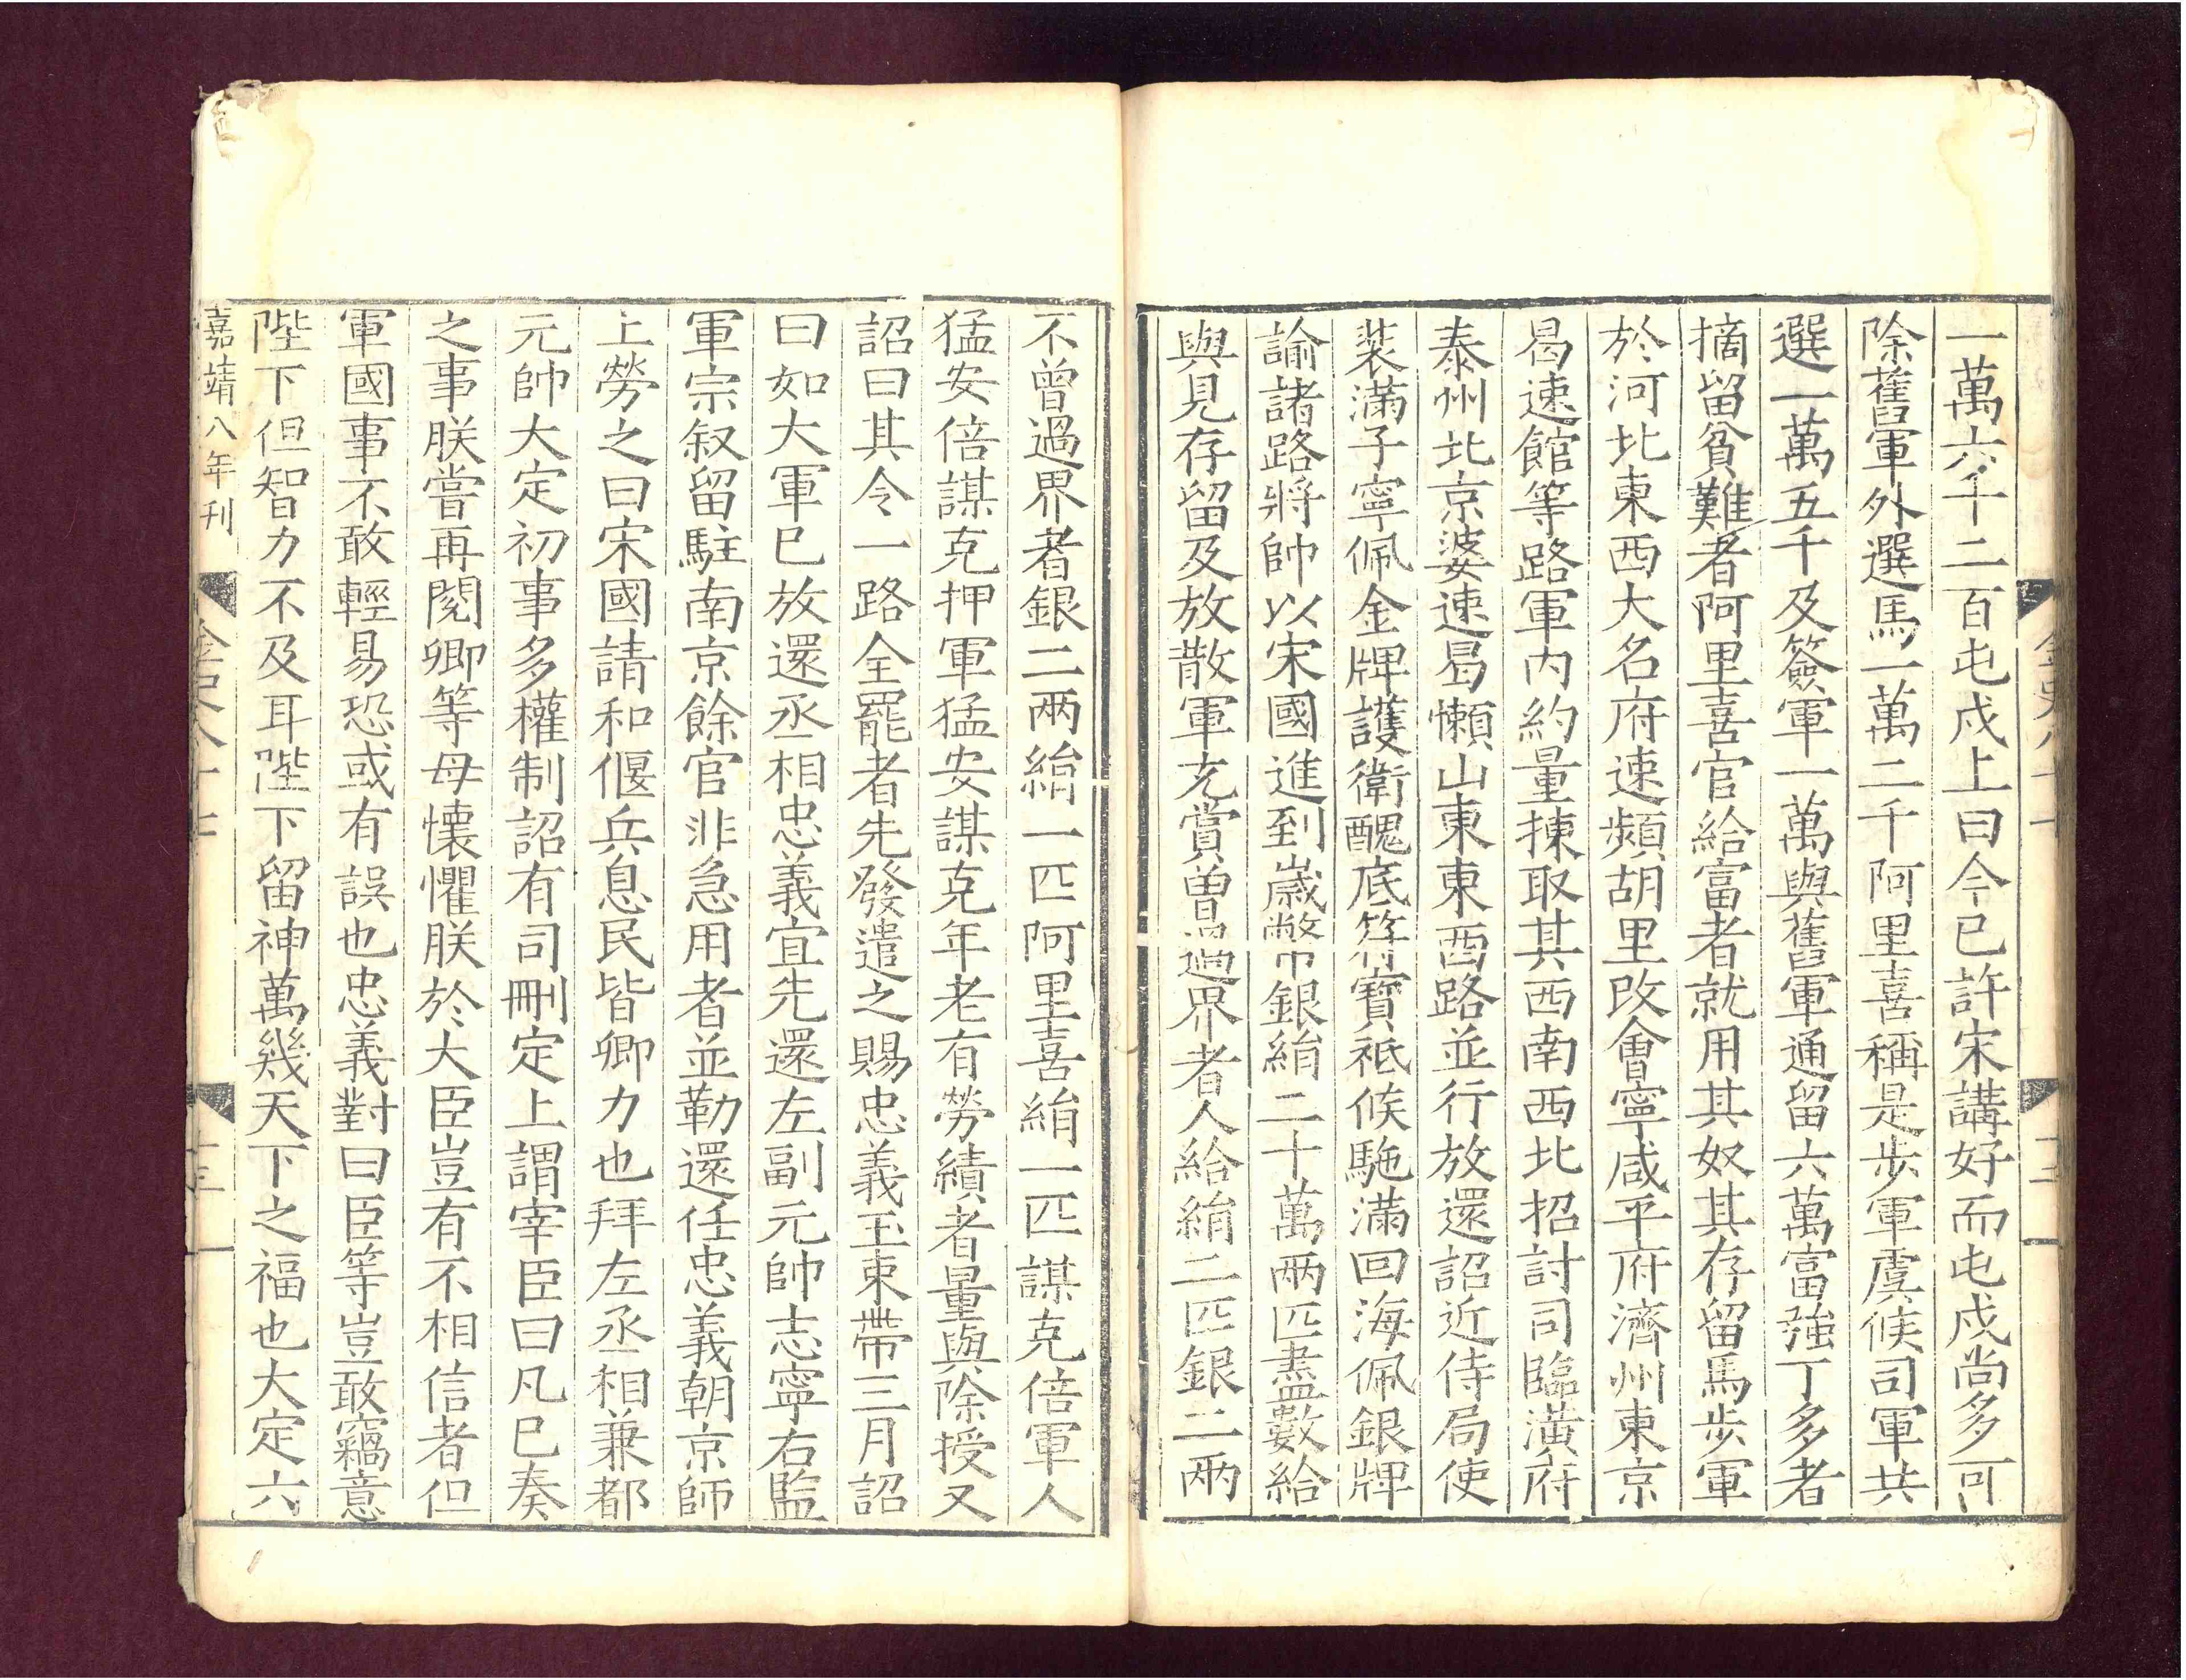 一萬六千二百屯戍上曰今已許宋講好而屯戍尚多可
除舊軍外選馬一萬二千阿里喜稱是步軍虞候司軍共
選一萬五千及簽軍一萬與舊軍通留六萬富強丁多者
摘留貧難者阿里喜官給富者就用其奴其存留馬步軍
於河北東西大名府速頻胡里改會寧咸平府濟州東京
曷速館等路軍內約量揀取其西南西北招討司臨潢府
泰州北京婆速曷懶山東東西路並行放還詔近侍局使
裴滿子寧佩金牌護衛醜底符寶祗候駞滿回海佩銀牌
諭諸路將帥以宋國進到歲幣銀絹二十萬兩匹盡數給
與見存留及放散軍充賞曾過界者人給絹二匹銀二兩
不曾過界者銀二兩絹一匹阿里喜絹一匹謀克倍軍人
猛安倍謀克押軍猛安謀克年老有勞績者量與除授又
詔曰其令一路全罷者先發遣之賜忠義玉束帶三月詔
曰如大軍已放還丞相忠義宜先還左副元帥志寧右監
軍宗叙留駐南京餘官非急用者並勒還任忠義朝京師
上勞之曰宋國請和偃兵息民皆卿力也拜左丞相兼都
元帥大定初事多權制詔有司刪定上謂宰臣曰凡已奏
之事朕嘗再閱卿等毋懷懼朕於大臣豈有不相信者但
軍國事不敢輕易恐或有誤也忠義對曰臣等豈敢竊意
陛下但智力不及耳陛下留神萬幾天下之福也大定六
嘉靖八年刊